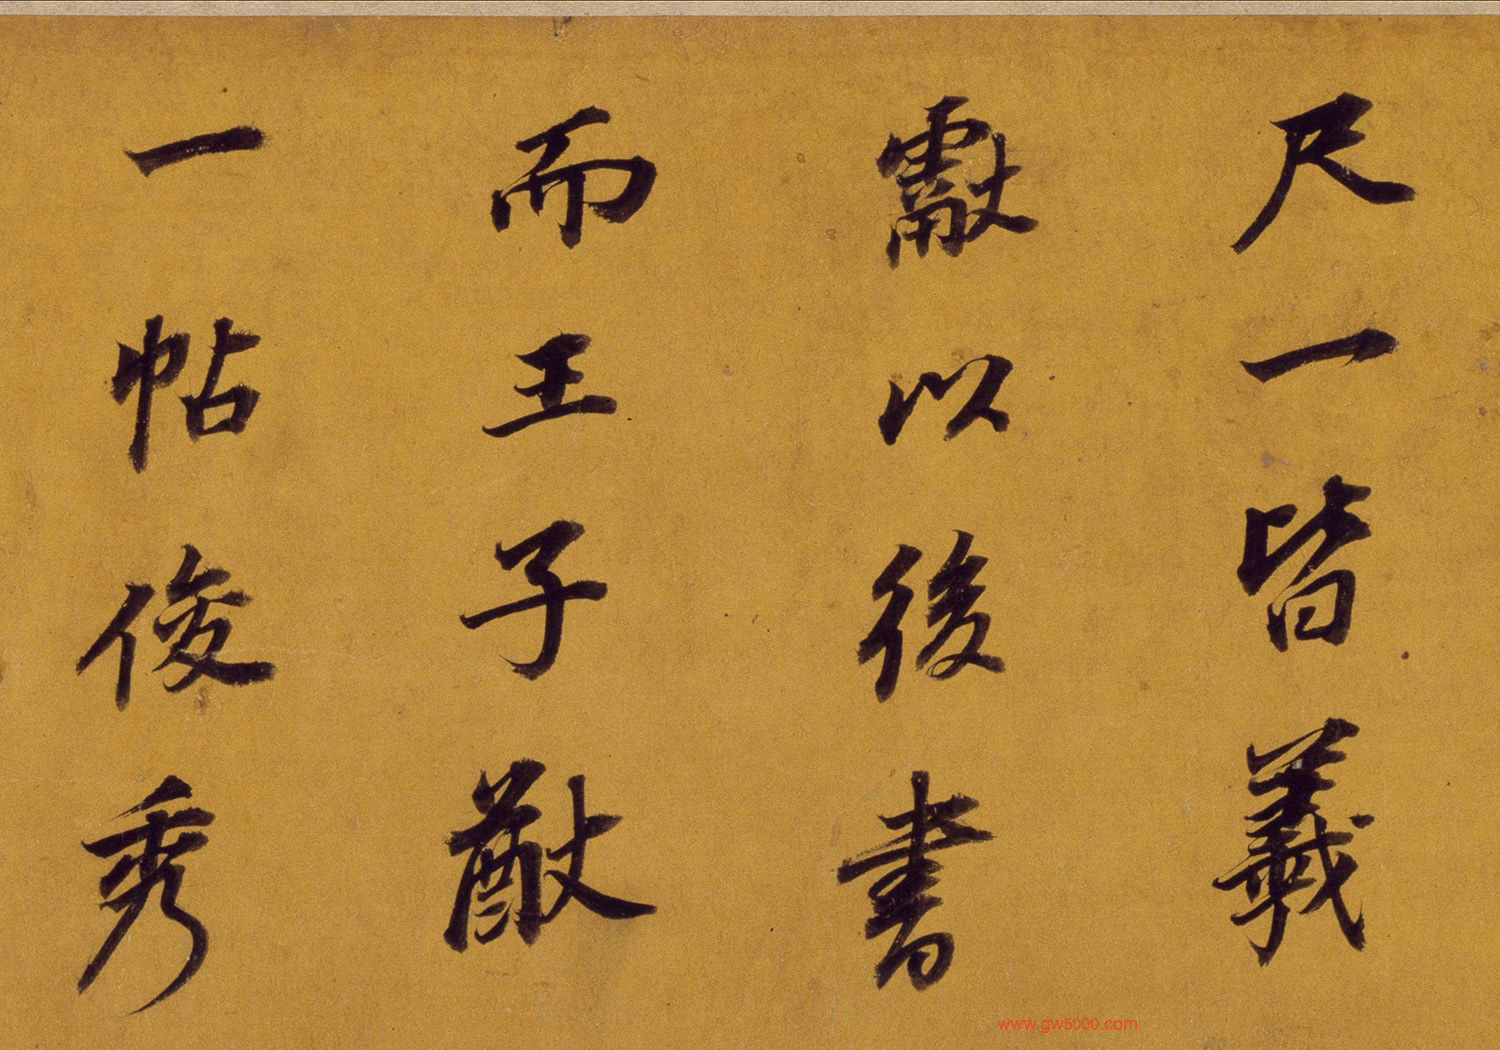 尺一皆羲
獻以後書
而王子猷
一帖俊秀
www.gw5000.com